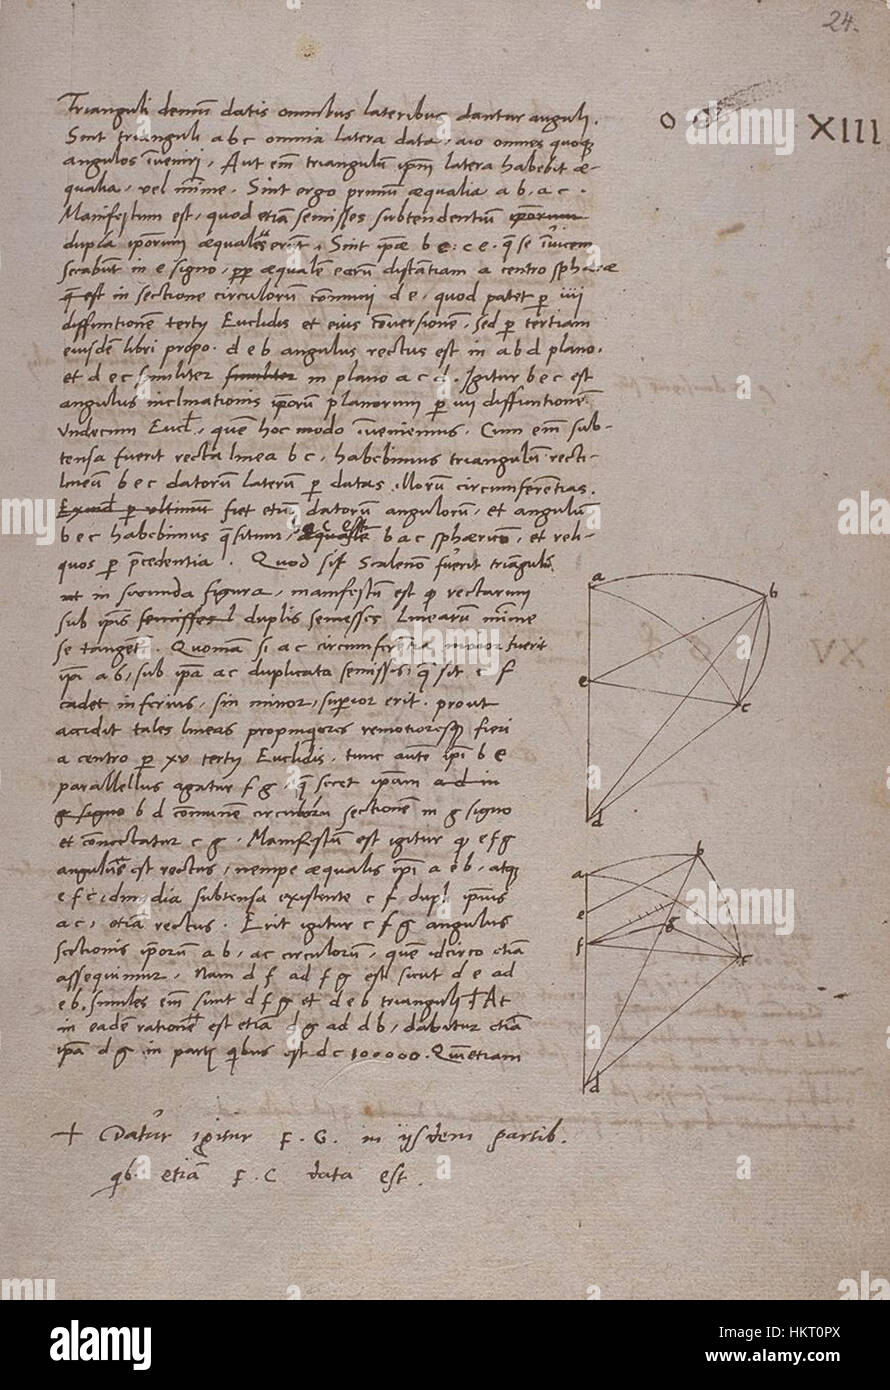 24.
XIII
Trianguli demũ datis omnibus lateribus dantur anguli.
Sint trianguli a b c omnia latera data, aio omnes quoqȝ
angulos ĩveniri, Aut em̃ triangulũ ip̃m latera habebit æ-
qualia, vel mĩme. Sint ergo primũ æqualia a b, a c.
Manifestum est, quod etiã semisses subtendentiũ ipõrum
dupla ipõrum æquales erũt. Sint ipæ b e: c e. q̃ se ĩvicem
secabũt in e signo, æqualẽ earũ distãtiam a centro sphæræ
q̃ est in sectione circulorũ cõmuni d e, quod patet p iiii
diffinitionẽ tertij Euclidis et eius cõversionẽ, sed p tertiam
eiusdẽ libri propo. d e b angulus rectus est in a b d plano.
et d e c similiter similiter in plano a c d. Igitur b e c est
angulus inclinationis ipõrũ planorum p iiii diffinitionẽ
undecimi Eucl, quẽ hoc modo ĩveniemus. Cum em̃ sub-
tensa fuerit recta linea b c, habebimus triangulũ recti-
lineũ b e c datorũ laterũ p datas illorũ circumferẽtias.
fiet etiã datorũ angulorũ, et angulũ
b e c habebimus q̃situm, b a c sphæricũ, et reli-
quos p p̃cedentia. Quod si Scalenõ fuerit triangulũ
ut in secunda figura, manifestũ est q̃ rectarum
sub ip̃is semisses duplis semisses linearũ mĩme
se tangẽt. Quoniã si a c circumferẽtia maior fuerit
ip̃a a b, sub ip̃a a c duplicata semissis, q̃ sit c f
cadet inferius, sin minor, superior erit. prout
accidit tales lineas propinquiores remotioresqȝ fieri
a centro p xv tertij Euclidis. tunc autẽ ip̃i b e
parallellus agatur f g, q̃ secet ipsam a d in
g signo b d cõmunẽ circulorũ sectionẽ in g signo
et cõnectatur c g. Manifestũ est igitur q̃ e f g
angulus est rectus, nempe æqualis ip̃i a e b, atqȝ
e f c, dimidia subtensa existente c f dupl ip̃ius
a c, etiã rectus. Erit igitur c f g angulus
sectionis ipõrum a b, a c circulorũ, quẽ idcirco etiã
assequimur. Nam d f ad f g est sicut d e ad
e b. similes em̃ sunt d f g et d e b trianguli + At
in eadẽ rationẽ est etiã d g ad d b, dabitur etiã
ip̃a d g in partibȝ quibus est d c 100000. Quĩetiam
+ Datur igitur F. G. in ijsdem partib.
qib. etiã F. C data est.
a
b
e
c
d
a
b
e
f
g
c
d
alamy
Image ID: HKT0PX
www.alamy.com